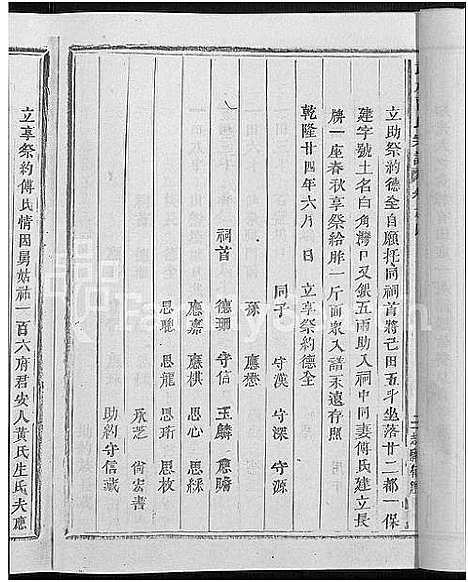 立助祭約德全自願托同祠首將己田五斗坐落廿二都一保
建字號土名白角灣口又銀五兩助入祠中同妻傅氏建立長
牌一座春秋享祭給胙一斤面衆入譜永遠存照
乾隆廿四年六月 日 立享祭約德全
同子 守漢 守深 守源
孫 應懋
祠首 德珊 守信 玉麟 應瞻
應嘉 應棋 思心 思綵
思聰 思龍 思珩 思枚
永芝 尙宏書
助約守信藏
立享祭約傅氏情因舅姑祐一百六府君安人黃氏生氏夫應